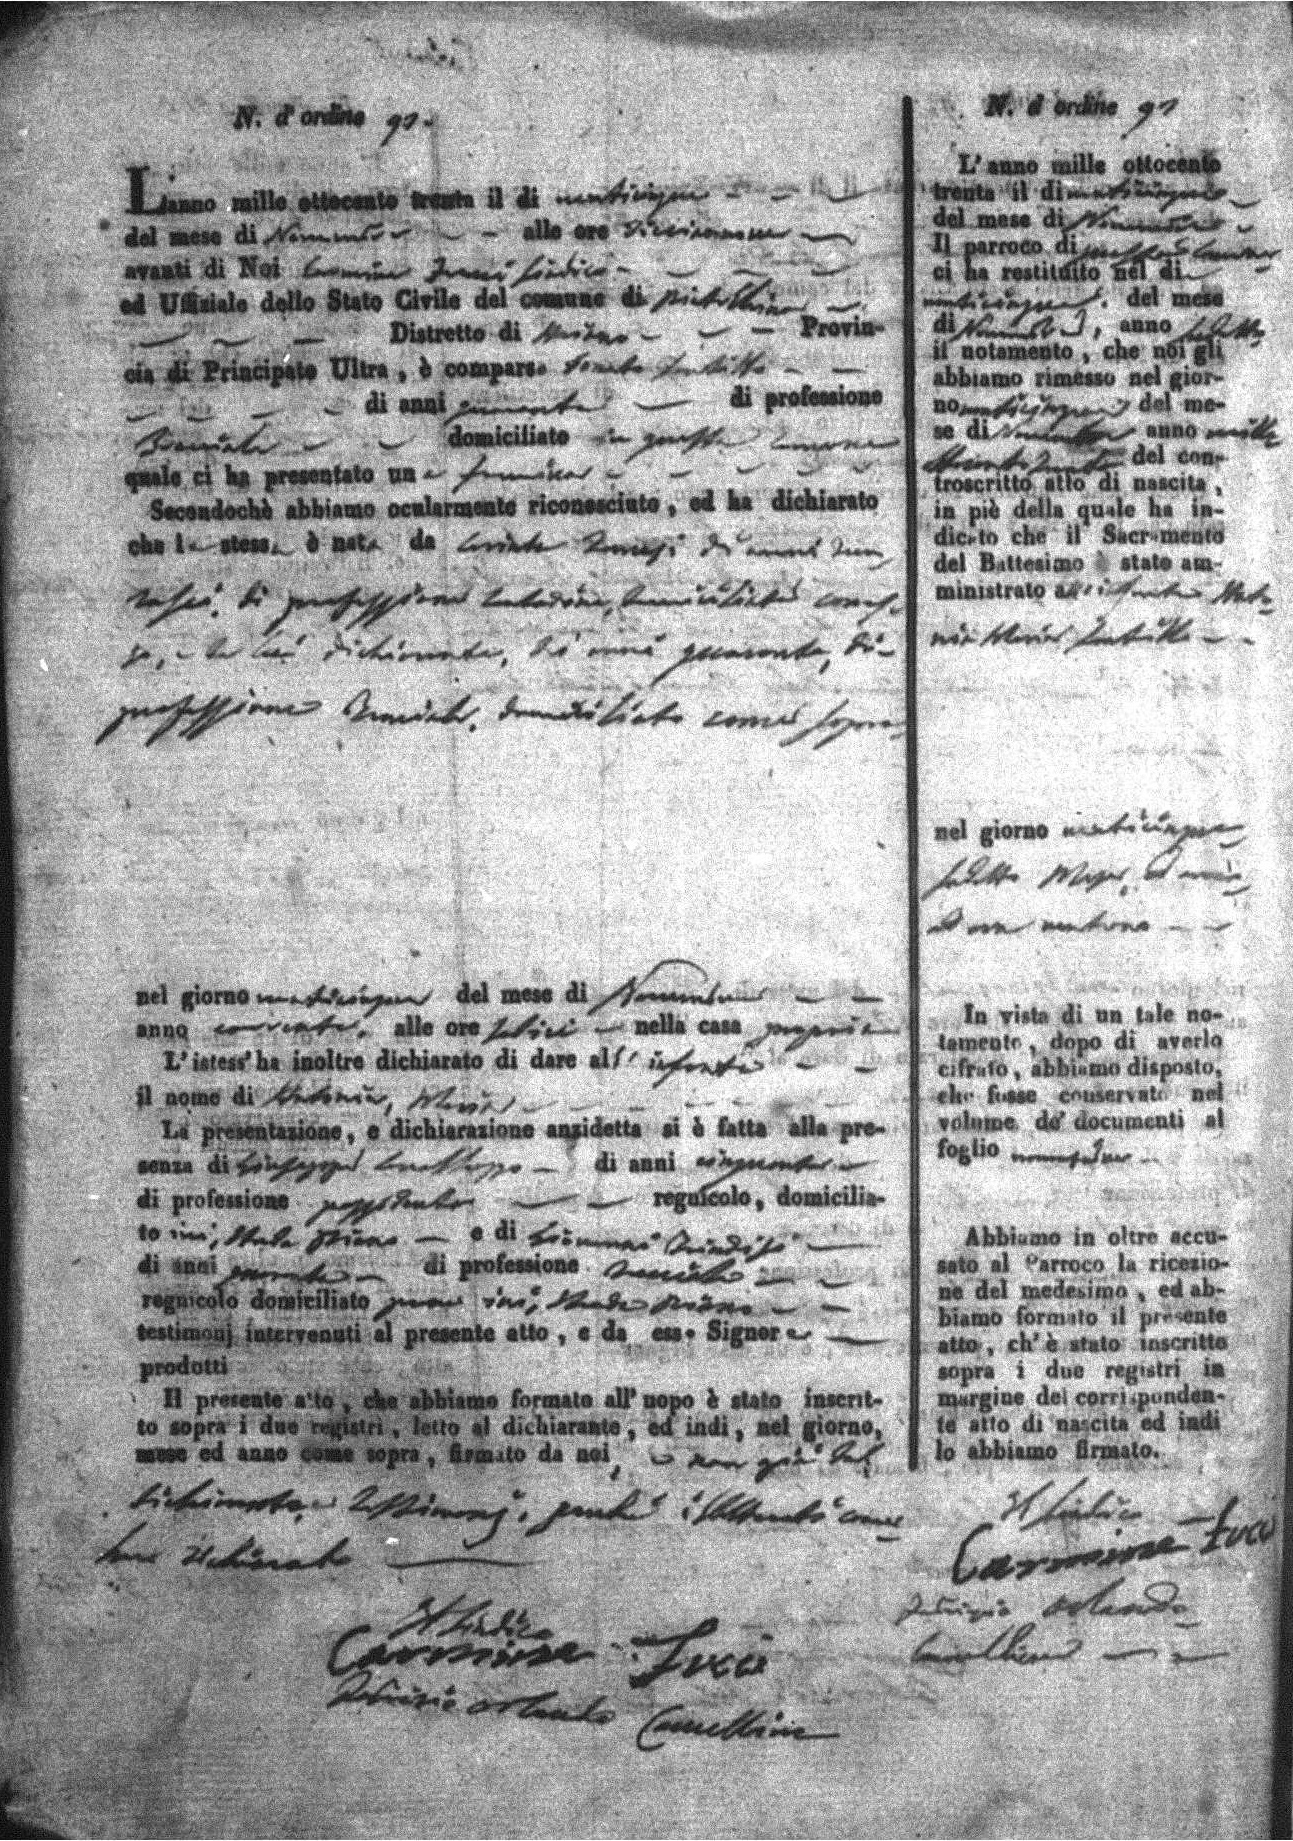 N. d'ordine 91.
L'anno mille ottocento trenta il di venticinque
del mese di Novembre alle ore diecinnove
avanti di Noi Carmine Fucci Sindico
ed Uffiziale dello Stato Civile del comune di
Distretto di Provin-
cia di Principato Ultra, è comparso Donato
di anni quaranta di professione
Bracciale domiciliato in questo comune
quale ci ha presentato una femina
Secondochè abbiamo ocularmente riconosciuto, ed ha dichiarato
che la stessa è nata da di anni tren
tasei, di professione contadina, domiciliata come so
pra, e da lui dichiarante, di anni quaranta, di
professione Bracciale, domiciliato come sopra
nel giorno venticinque del mese di Novembre
anno corrente, alle ore sedici nella casa propria
L'istess' ha inoltre dichiarato di dare all' infante
il nome di Antonia, Maria
La presentazione, e dichiarazione anzidetta si è fatta alla pre-
senza di Giuseppe di anni cinquanta
di professione possidente regnicolo, domicilia-
to ivi, strada Piano e di Giovanni
di anni quaranta di professione bracciale
regnicolo domiciliato pure ivi, strada Piano
testimonj intervenuti al presente atto, e da esso Signor
prodotti
Il presente atto, che abbiamo formato all' uopo è stato inscrit-
to sopra i due registri, letto al dichiarante, ed indi, nel giorno,
mese ed anno come sopra, firmato da noi, e non già dal
dichiarante, e testimonj, perché illetterati come
han dichiarato
Il Sindico
Carmine Fucci
Orlando Cancelliere
N. d'ordine 91
L'anno mille ottocento
trenta il di venticinque
del mese di Novembre
Il parroco di questo Comune
ci ha restituito nel di
venticinque, del mese
di Novembre, anno sudetto
il notamento, che noi gli
abbiamo rimesso nel gior-
no venticinque del me-
se di Novembre anno mille
ottocento trenta del con-
troscritto atto di nascita,
in piè della quale ha in-
dicato che il Sacramento
del Battesimo è stato am-
ministrato all' infante Anto-
nia Maria
nel giorno venticinque
sudetto Mese, ed anno
ad ore ventuna
In vista di un tale no-
tamento, dopo di averlo
cifrato, abbiamo disposto,
che fosse conservato nel
volume de' documenti al
foglio novantuno
Abbiamo in oltre accu-
sato al Parroco la ricezio-
ne del medesimo, ed ab-
biamo formato il presente
atto, ch' è stato inscritto
sopra i due registri in
margine del corrisponden-
te atto di nascita ed indi
lo abbiamo firmato.
Il Sindico
Carmine Fucci
Orlando
Cancelliere